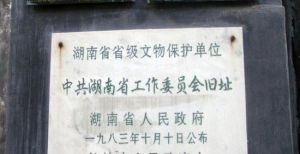 湖南省省级文物保护单位
中共湖南省工作委员会旧址
湖南省人民政府
一九八三年十月十日公布